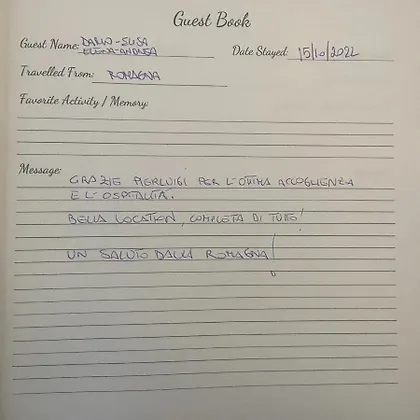 Guest Book
Guest Name: DARIO - SUSA
ELENA - ANDREA
Date Stayed: 15/10/2022
Travelled From: ROMAGNA
Favorite Activity / Memory:
Message:
GRAZIE PIERLUIGI PER L'OTTIMA ACCOGLIENZA
E L'OSPITALITÀ.
BELLA LOCATION, COMPLETA DI TUTTO!
UN SALUTO DALLA ROMAGNA!